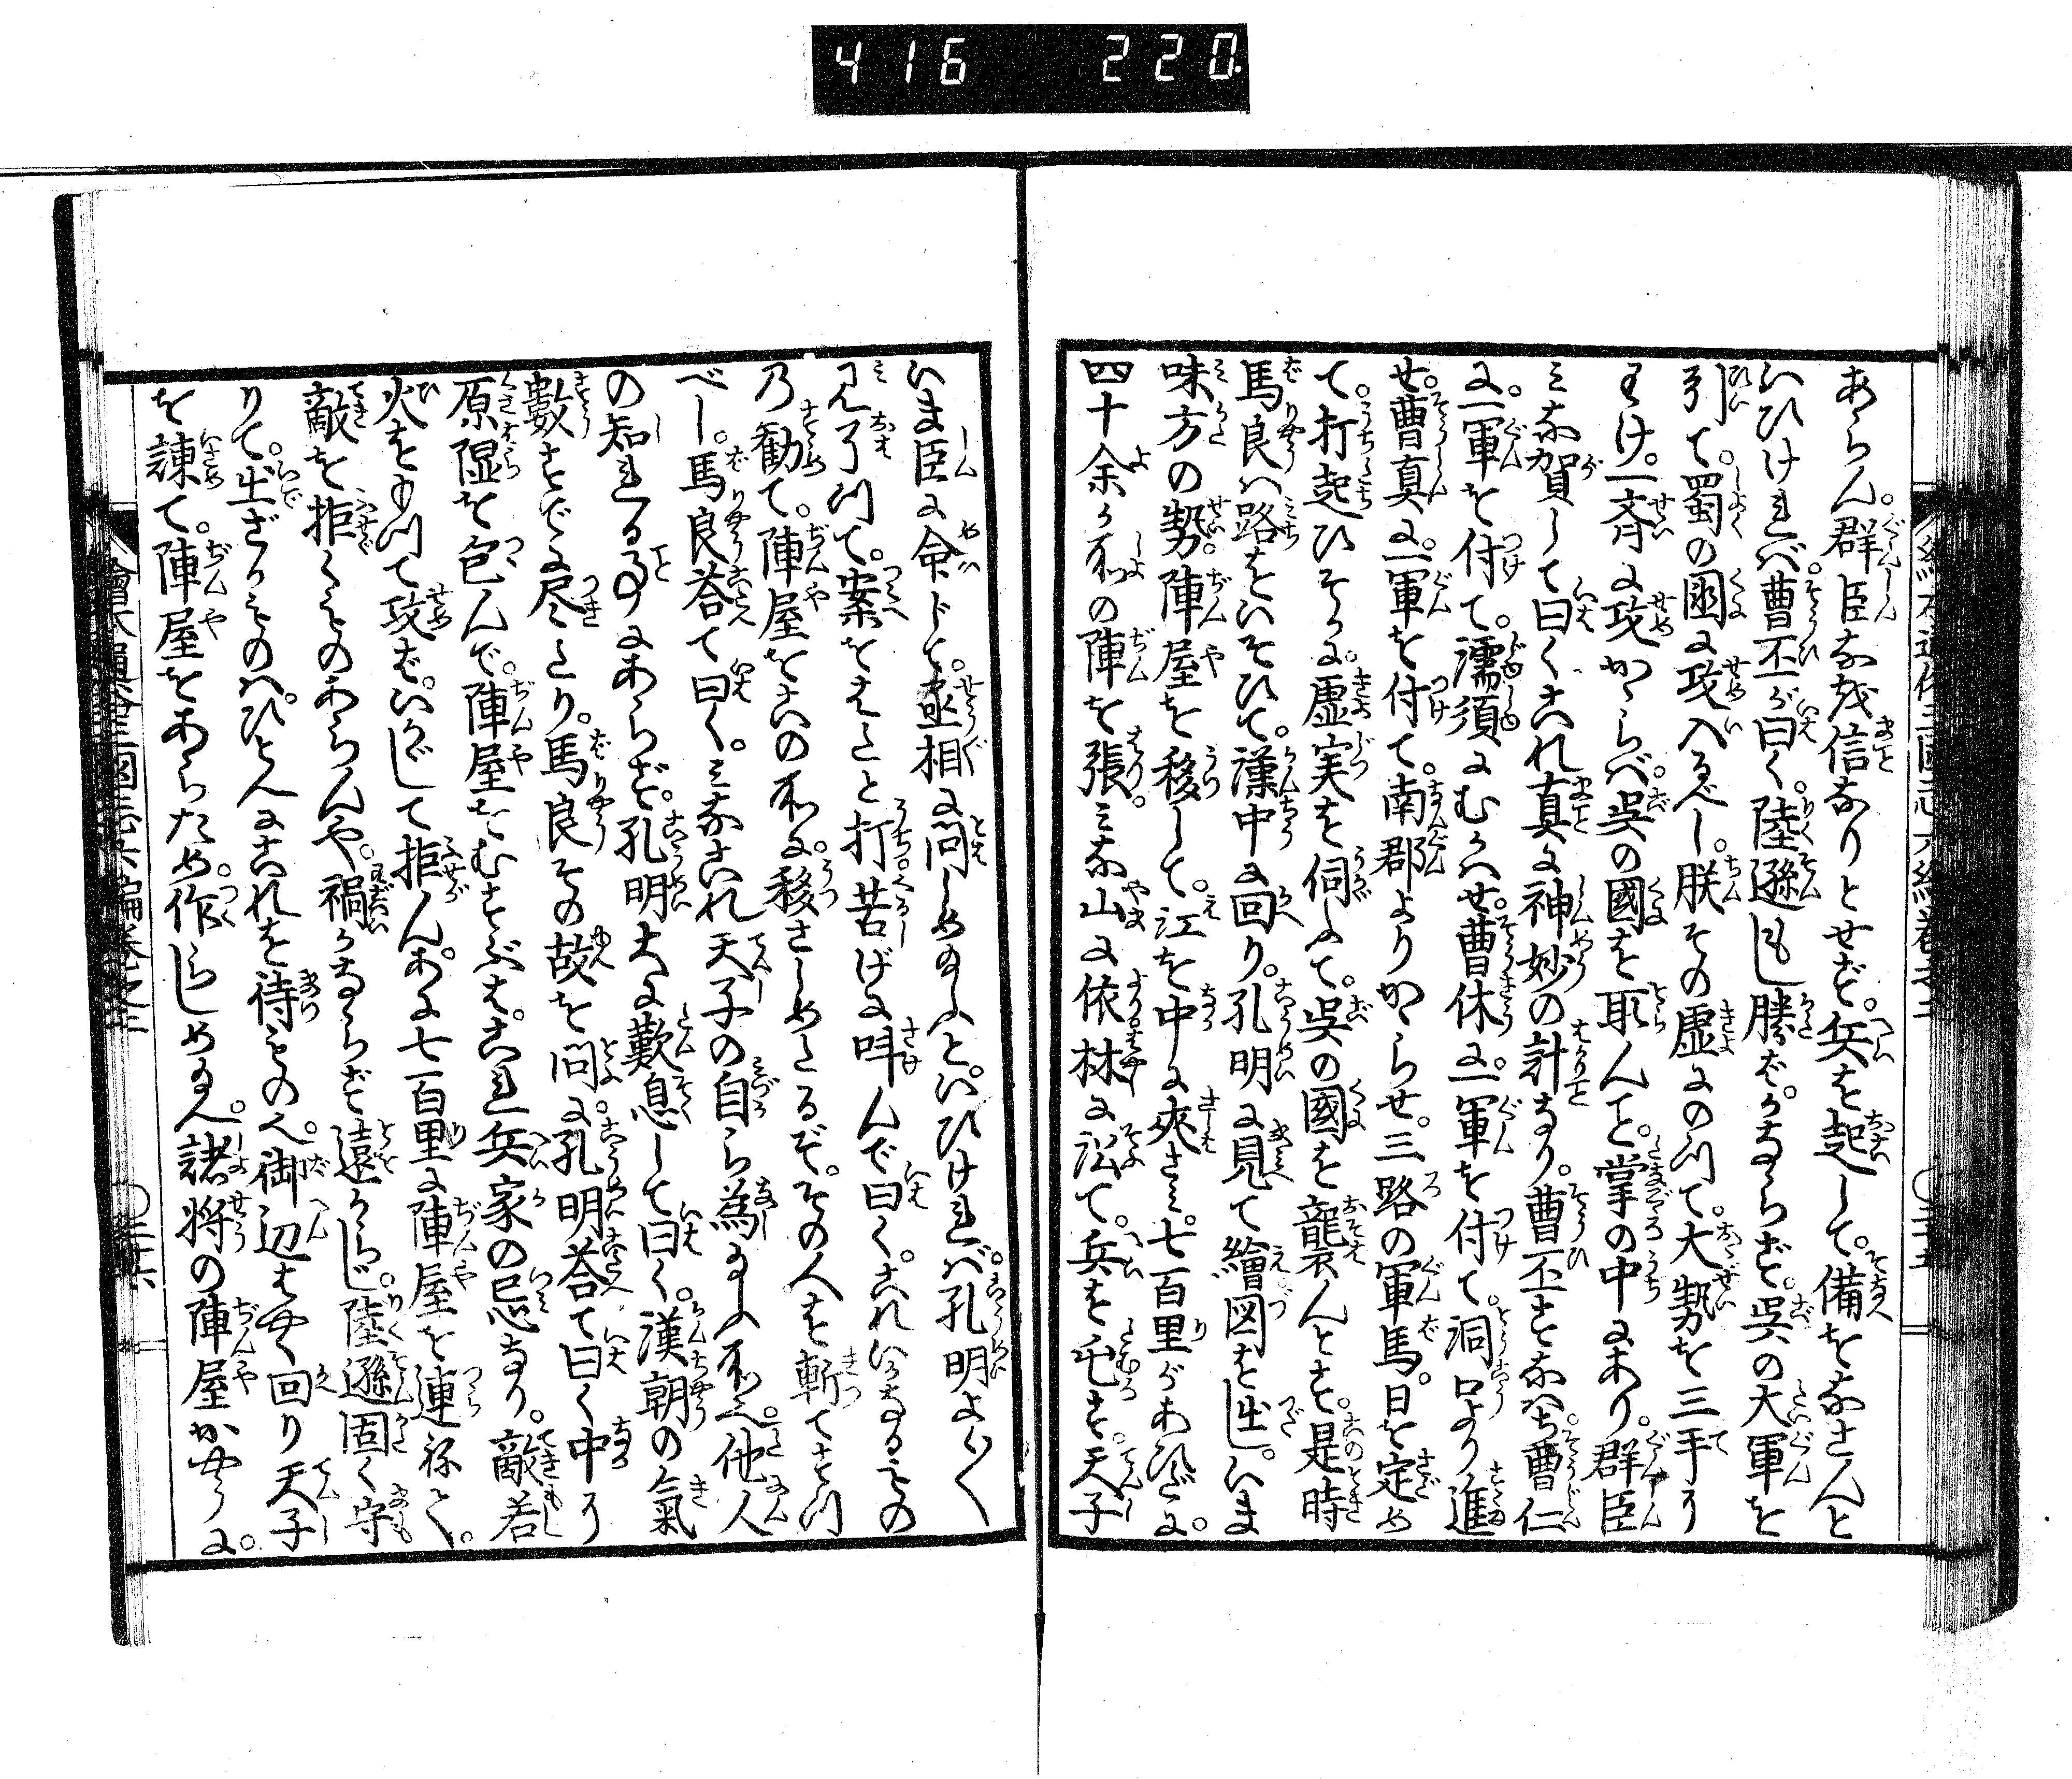 416 220
あらん。群臣な茂信なりとせず。兵を起して。備をなさんと
いひければ。曹丕が曰く。陸遜もし勝ば。かならず。呉の大軍を
引て。蜀の國に攻入るべし。朕その虚にのつて。大勢を三手に
わけ。一斉に攻かゝらば。呉の國を取んこと。掌の中にあり。群臣
みな賀して曰く。これ真に神妙の計なり。曹丕すなはち。曹仁
に。一軍を付て。濡須にむかはせ。曹休に。一軍を付て。洞口より進
せ。曹真に。一軍を付て。南郡よりかゝらせ。三路の軍馬。日を定め
て。打起ひそかに。虚実を伺ふて。呉の國を襲んとす。是時
馬良は路をいそひで。漢中に回り。孔明に見て繪図を出し。いま
味方の勢。陣屋を移して。江を中に夾さみ。七百里があひだに。
四十余ヶ所の陣を張。みな山に依林に沿て。兵を屯す。天子
いま臣に命じて。丞相に問しめ給ふと。いひければ。孔明よく〱
見了つて。案をはたと打。苦げに叫んで曰く。これいかなるもの
乃勧て。陣屋をこの所に。移さしめたるぞ。その人を斬てすつ
べし。馬良荅て曰く。みなこれ天子の自ら為給ふ所。他人
の知れる事にあらず。孔明大に歎息して曰く。漢朝の氣
數すでに尽たり。馬良その故を問に。孔明荅て曰く中に
原隰を包んで。陣屋をむすぶは。これ兵家の忌なり。敵若
火をもつて攻ば。いかゞして拒ん。あに七百里に陣屋を連ねて。
敵を拒くもののあらんや。禍かならず遠からじ。陸遜固く守
りて。出ざるものは。ひとへにこれを待もの。御辺はやく回り天子
を諌て。陣屋をあらため。作らしめ給へ。諸将の陣屋かやうに。